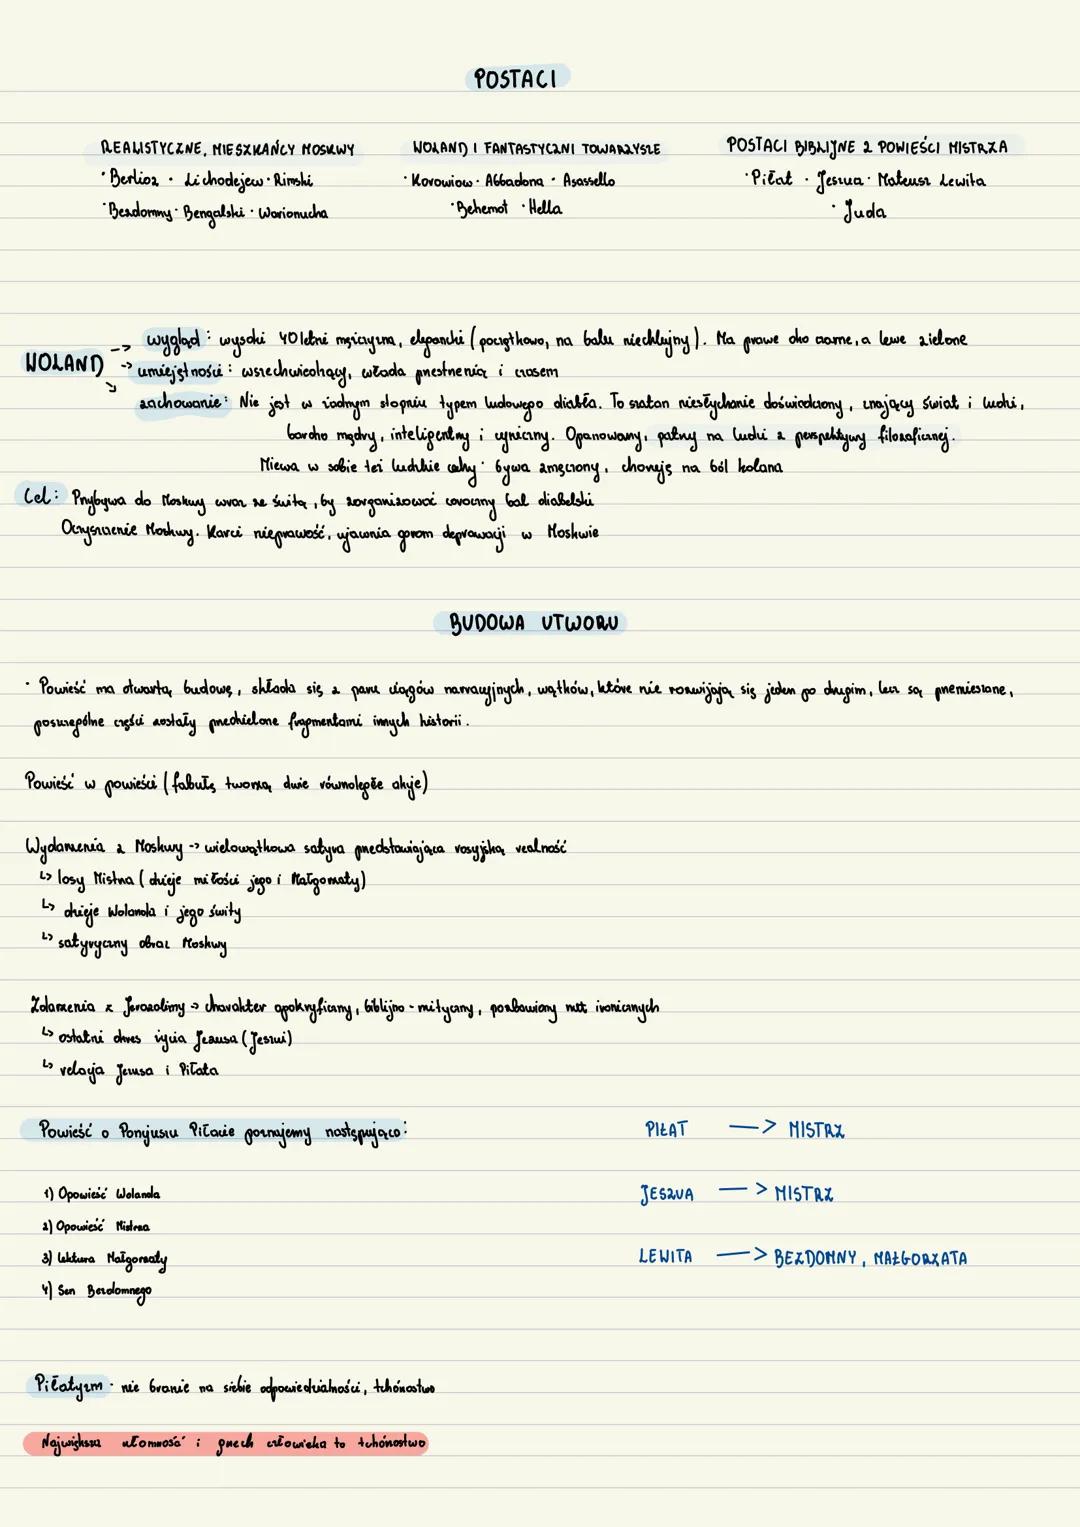 POSTACI
REALISTYCZNE, MIESZKAŃCY MOSKWY
· Berlioz · Lichodejew · Rimski
· Bezdomny · Bengalski · Warionucha
WOLAND I FANTASTYCZNI TOWARZYSZE
· Korowiow · Abbadona · Asassello
· Behemot · Hella
POSTACI BIBLIJNE Z POWIEŚCI MISTRZA
· Piłat · Jeszua · Mateusz Lewita
· Juda
WOLAND -> wygląd: wysoki 40letni mężczyzna, elegancki (początkowo, na balu niechlujny). Ma prawe oko czarne, a lewe zielone
-> umiejętności: wszechwiedzący, włada przestrzenią i czasem
-> zachowanie: Nie jest w żadnym stopniu typem ludowego diabła. To szatan niesłychanie doświadczony, znający świat i ludzi,
bardzo mądry, inteligentny i cyniczny. Opanowany, patrzy na ludzi z perspektywy filozoficznej.
Miewa w sobie też ludzkie cechy · bywa zmęczony, choruje na ból kolana
Cel: Przybywa do Moskwy wraz ze świtą, by zorganizować coroczny bal diabelski
Oczyszczenie Moskwy. Karci nieprawość, ujawnia ogrom deprawacji w Moskwie
BUDOWA UTWORU
· Powieść ma otwartą budowę, składa się z paru ciągów narracyjnych, wątków, które nie rozwijają się jeden po drugim, lecz są przemieszane,
poszczególne części zostały przedzielone fragmentami innych historii.
Powieść w powieści (fabułę tworzą dwie równoległe akcje)
Wydarzenia z Moskwy -> wielowątkowa satyra przedstawiająca rosyjską realność
↳ losy Mistrza (dzieje miłości jego i Małgorzaty)
↳ dzieje Wolanda i jego świty
↳ satyryczny obraz Moskwy
Zdarzenia z Jerozolimy -> charakter apokryficzny, biblijno-mityczny, pozbawiony nut ironicznych
↳ ostatni okres życia Jezusa (Jeszui)
↳ relacja Jezusa i Piłata
Powieść o Poncjuszu Piłacie poznajemy następująco:
1) Opowieść Wolanda
2) Opowieść Mistrza
3) Lektura Małgorzaty
4) Sen Bezdomnego
PIŁAT —> MISTRZ
JESZUA —> MISTRZ
LEWITA —> BEZDOMNY, MAŁGORZATA
Piłatyzm · nie branie na siebie odpowiedzialności, tchórzostwo
Największa ułomność i grzech człowieka to tchórzostwo